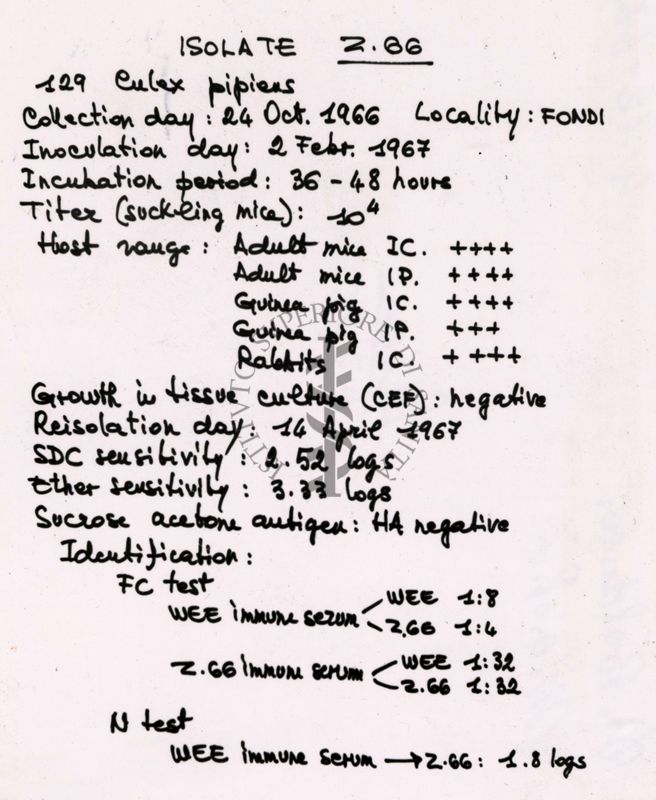 ISOLATE Z.66
129 Culex pipiens
Collection day: 24 Oct. 1966 Locality: FONDI
Inoculation day: 2 Febr. 1967
Incubation period: 36 - 48 hours
Titer (suckling mice): 10⁴
Host range: Adult mice IC. ++++
Adult mice IP. ++++
Guinea pig IC. ++++
Guinea pig IP. +++
Rabbits IC. ++++
Growth in tissue culture (CEF): negative
Reisolation day: 14 April 1967
SDC sensitivity: 2.52 logs
Ether sensitivity: 3.33 logs
Sucrose acetone antigen: HA negative
Identification:
FC test
WEE immune serum WEE 1:8
Z.66 1:4
Z.66 immune serum WEE 1:32
Z.66 1:32
N test
WEE immune serum → Z.66: 1.8 logs
ISTITVTO SVPERIORE DI SANITA